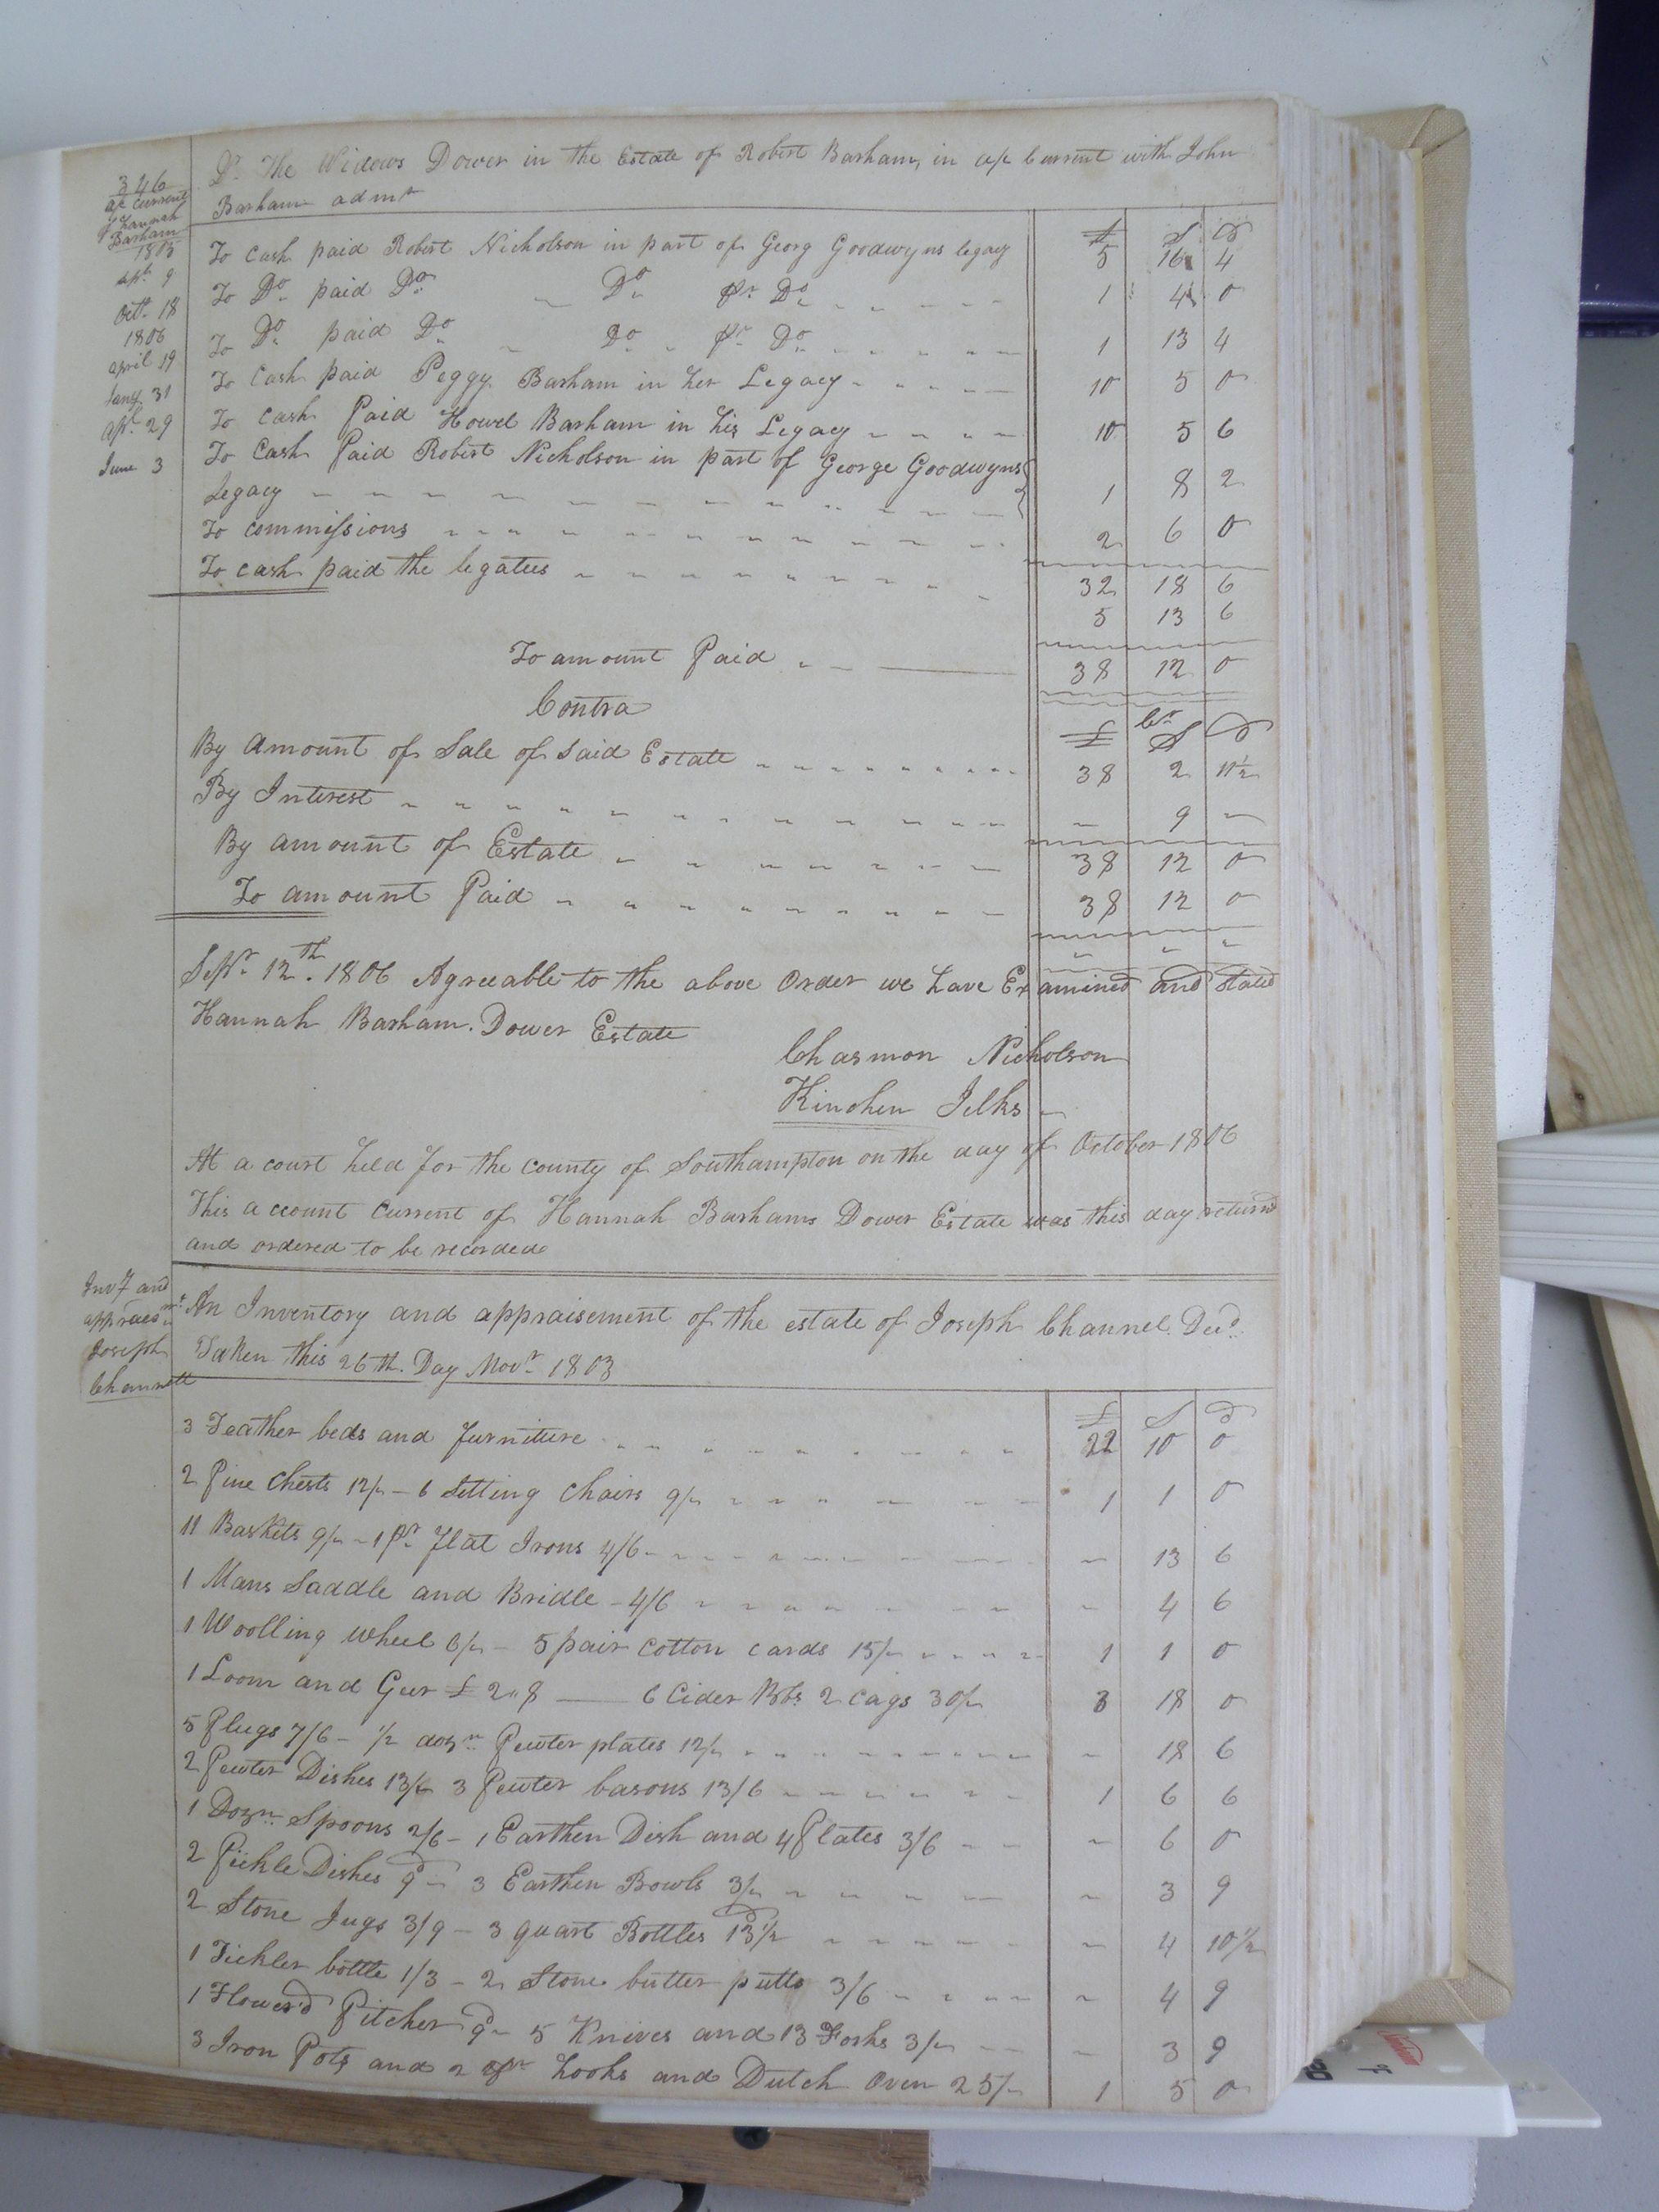 346
a/c Current
of Hannah
Barham
Dr. The Widows Dower in the Estate of Robert Barham, in a/c Current with John
Barham admr
£ S D
1805
Apl. 9 To Cash paid Robert Nicholson in part of Georg Goodwyns legacy 5 16 4
Octr. 18 To Do. paid Do. Do. pr Do. 1 4 0
1806
April 19 To Do. paid Do. Do. pr Do. 1 13 4
Jany. 31 To Cash paid Peggy Barham in her Legacy 10 5 0
Apl. 29 To Cash Paid Howel Barham in his Legacy 10 5 6
June 3 To Cash Paid Robert Nicholson in part of George Goodwyns
Legacy 1 8 2
To commissions 2 6 0
32 18 6
To cash paid the legatees 5 13 6
To amount Paid 38 12 0
Contra Cr
£ S D
By Amount of Sale of Said Estate 38 2 11½
By Interest - 9 -
By amount of Estate 38 12 0
To amount Paid 38 12 0
Sepr. 12th. 1806 Agreeable to the above Order we have Examined and Stated
Hannah Barham. Dower Estate
Charmon Nicholson
Kinchen Jelks
At a court held for the county of Southampton on the day of October 1806
This account Current of Hannah Barhams Dower Estate was this day returnd
and ordered to be recorded
Invy and
appraesmt
Joseph
Channell
An Inventory and appraisement of the estate of Joseph Channel. Decd.
Taken this 26th. Day Novr. 1803
£ S D
3 Feather beds and furniture 22 10 0
2 Pine Chests 12/- - 6 Setting Chairs 9/- 1 1 0
11 Baskets 9/- - 1 Pr. flat Irons 4/6 - 13 6
1 Mans Saddle and Bridle - 4/6 - 4 6
1 Woolling wheel 6/- - 5 pair cotton cards 15/- 1 1 0
1 Loom and Geer £ 2"8 — 6 Cider Bbs. 2 cags 30/- 3 18 0
5 Plugs 7/6 - ½ dozn. Pewter plates 12/- - 18 6
2 Pewter Dishes 13/- 3 Pewter basons 13/6 1 6 6
1 Dozn. Spoons 2/6 - 1 Earthen Dish and 4 Plates 3/6 - 6 0
2 Pickle Dishes 9d - 3 Earthen Bowls 3/- - 3 9
2 Stone Jugs 3/9 - 3 quart Bottles 13½d - 4 10½
1 Tickler bottle 1/3 - 2 Stone butter potts 3/6 - 4 9
1 Flower'd Pitcher 9d - 5 Knives and 13 Forks 3/- - 3 9
3 Iron Pots and 2 pr hooks and Dutch Oven 25/- 1 5 0